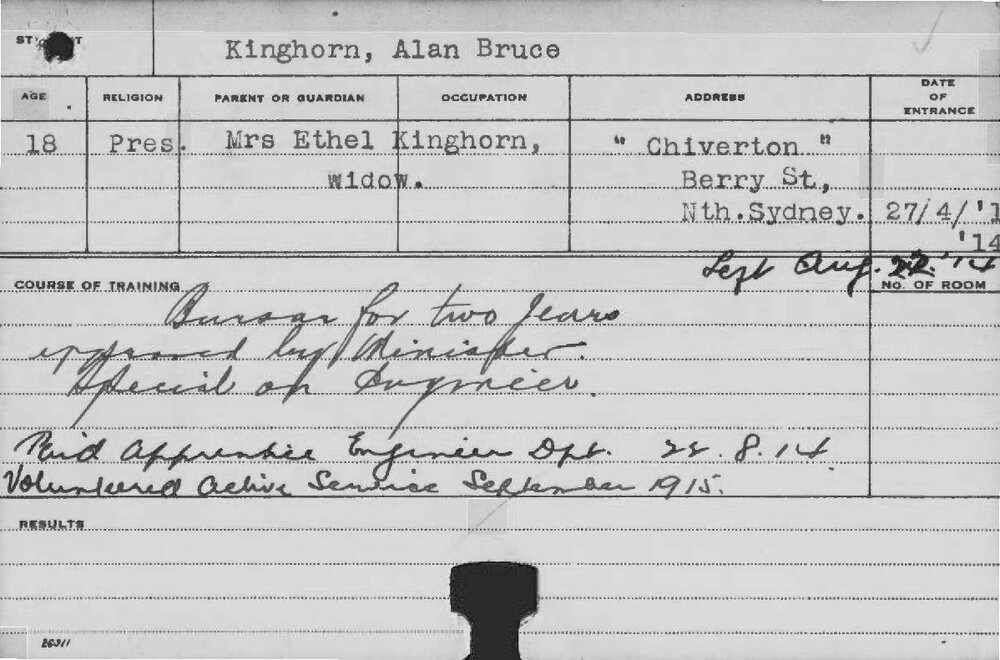 Kinghorn, Alan Bruce
AGE RELIGION PARENT OR GUARDIAN OCCUPATION ADDRESS DATE OF ENTRANCE
18 Pres. Mrs Ethel Kinghorn, " Chiverton "
Widow. Berry St,
Nth.Sydney. 27/4/'1
'14
Left Aug. 22. '14
COURSE OF TRAINING NO. OF ROOM
Bursar for two years
approved by Minister.
Special on Engineer.
Paid Apprentice Engineer Dpt. 22. 8. 14
Volunteered Active Service September 1915.
RESULTS
26311